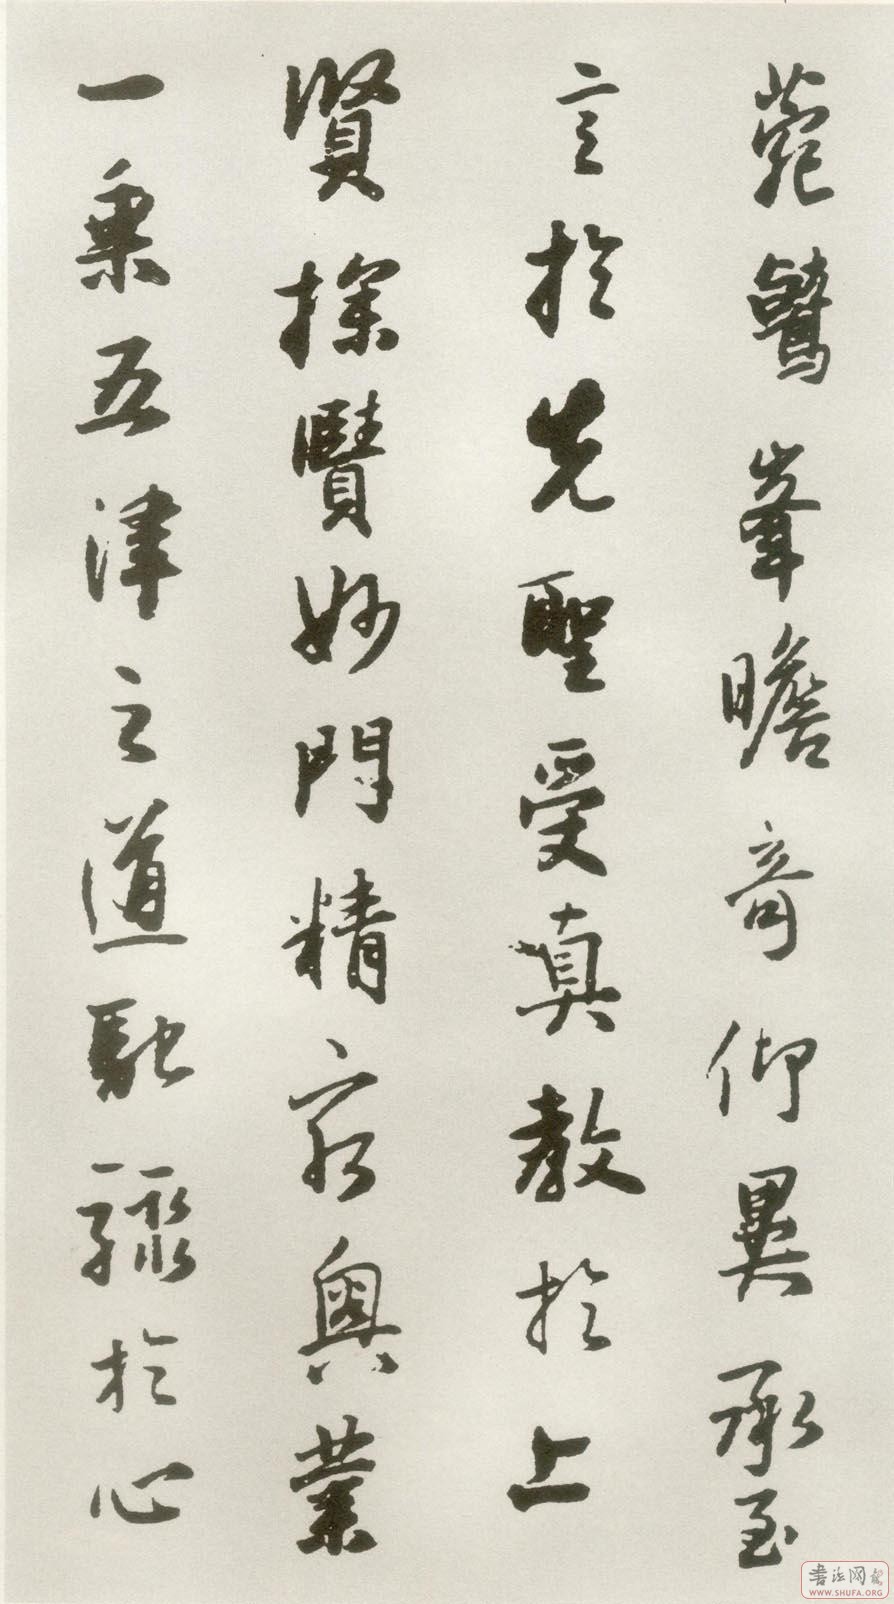 菀鷲峯瞻奇仰異承至
言於先聖受真教於上
賢探賾妙門精窮奧業
一乘五津之道馳驟於心
書法网
WWW.SHUFA.ORG